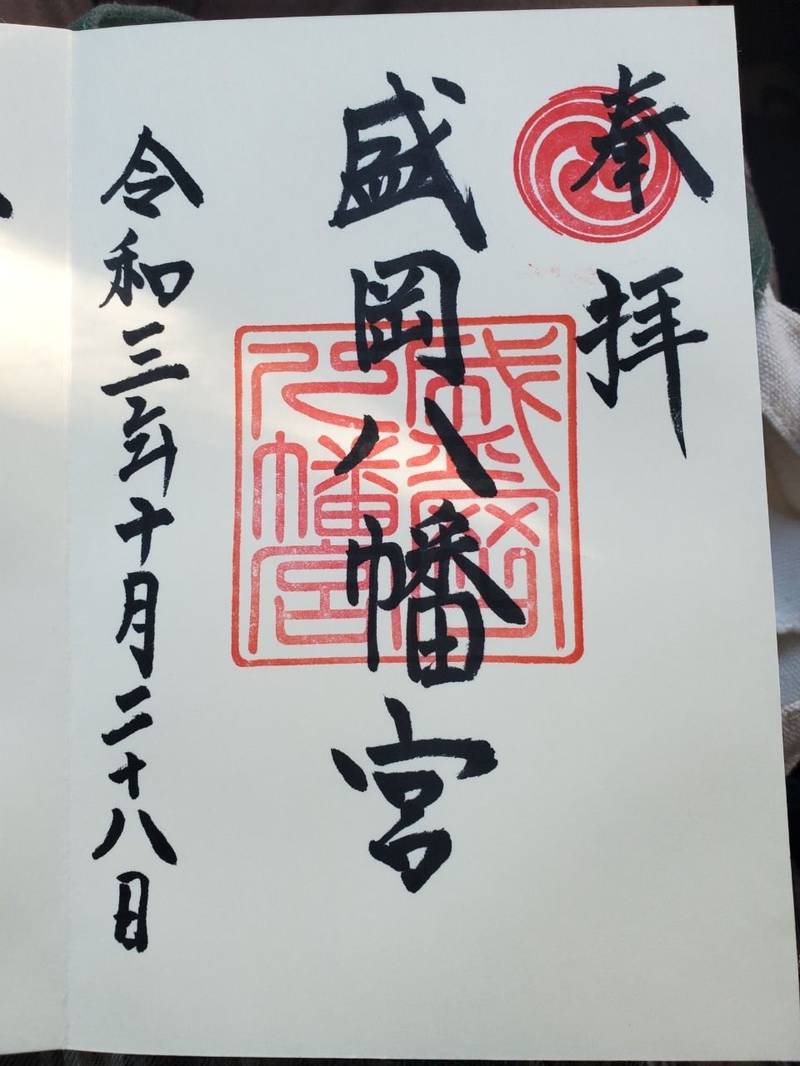 奉拝
盛岡八幡宮
盛岡
八幡宮
令和三年十月二十八日